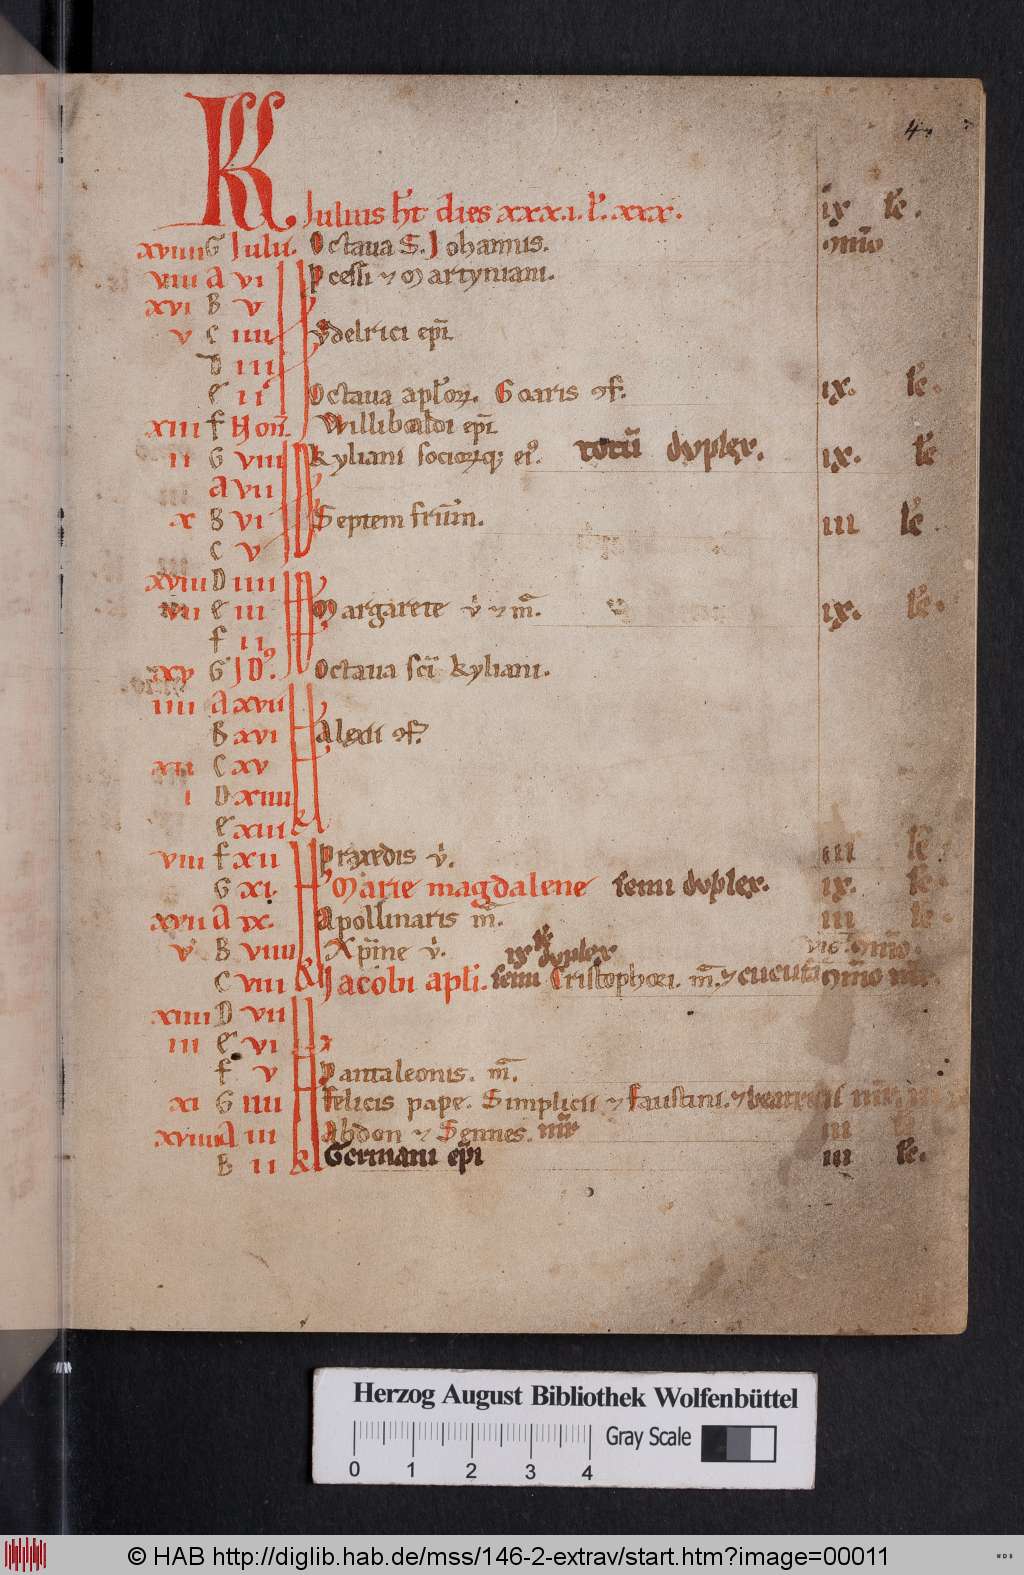 4.
KL
Julius h̄t dies xxx.i. l̄. xxx. ix le.
xviiii G Julii. Octaua S. Johannis. ɔm̄o
viii A vi Pcessi ⁊ Martyniani.
xvi B v
v C iiii Vdelrici ep̄i
D iii
e ii Octaua apl'oꝝ. Goaris ɔf. ix. le.
xiii f Non̄. Willibaldi ep̄i
ii G viii Kyliani socioꝝqꝫ ei᾿. totū duplex. ix. le
A vii
x B vi Septem fr̄um. iii le
C v
xviii D iiii
vii e iii Margarete v̄ ⁊ m̄. ix. le.
f ii
xv G JD᾿. Octaua sc̄i kyliani.
iiii A xvii
B xvi Alexii ɔf.
xii C xv
i D xiiii
e xiii
viii f xii Praxedis v̄. iii le
G xi. Marie magdalene semi duplex. ix. le
xvii A ix. Apollinaris m̄. iii le
v B viiii Xp̄ine v̄. ix le duplex ɔm̄o.
C viii Jacobi apl̄i. semi Cristophori. m̄. ⁊ cucufati ɔm̄o
xiiii D vii
iii e vi
f v Pantaleonis. m̄.
xi G iiii Felicis pape. Simplicii ⁊ Faustini. ⁊
xviiii A iii Abdon ⁊ Sennes. m̄r iii
B ii Germani ep̄i iii le.
Herzog August Bibliothek Wolfenbüttel
Gray Scale
0 1 2 3 4
© HAB http://diglib.hab.de/mss/146-2-extrav/start.htm?image=00011